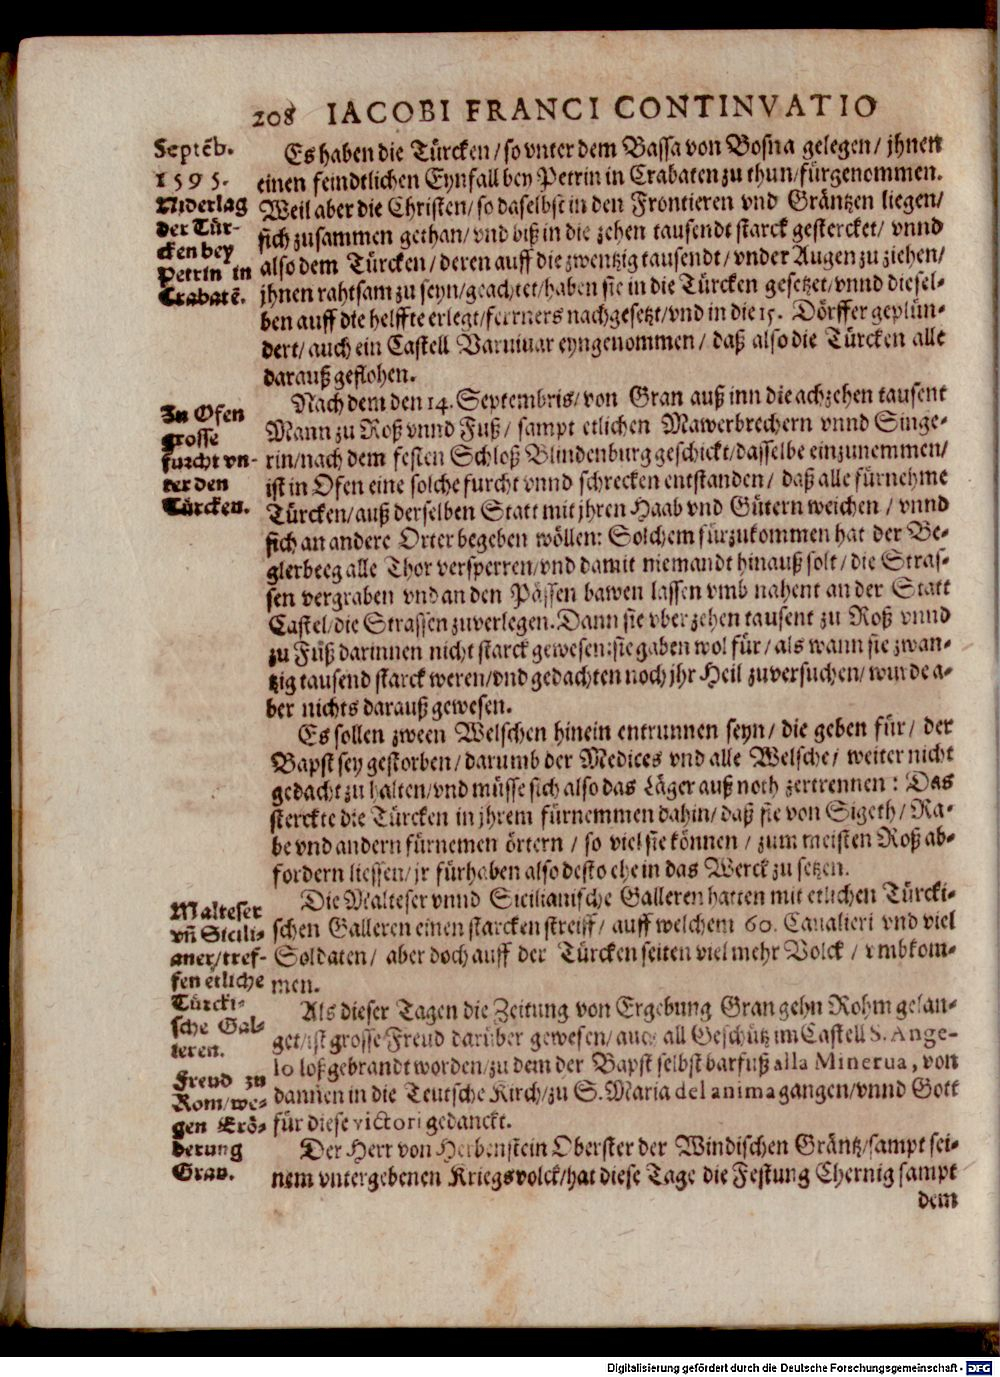 208 IACOBI FRANCI CONTINVATIO
Septẽb.
1595.
Niderlag
der Tür-
cken bey
Petrin in
Crabatẽ.
Es haben die Türcken / so vnter dem Bassa von Bosna gelegen / jhnen
einen feindtlichen Eynfall bey Petrin in Crabaten zu thun / fürgenommen.
Weil aber die Christen / so daselbst in den Frontieren vnd Gräntzen liegen /
sich zusammen gethan / vnd biß in die zehen tausendt starck gestercket / vnnd
also dem Türcken / deren auff die zwentzig tausendt / vnder Augen zu ziehen /
jhnen rahtsam zu seyn / geachtet / haben sie in die Türcken gesetzet / vnnd diesel-
ben auff die helffte erlegt / ferrners nachgesetzt / vnd in die 15. Dörffer geplün-
dert / auch ein Castell Varuiuar eyngenommen / daß also die Türcken alle
darauß geflohen.
In Ofen
grosse
furcht vn-
ter den
Türcken.
Nach dem den 14. Septembris / von Gran auß inn die achzehen tausent
Mann zu Roß vnnd Fuß / sampt etlichen Mawerbrechern vnnd Singe-
rin / nach dem festen Schloß Blindenburg geschickt / dasselbe einzunemmen /
ist in Ofen eine solche furcht vnnd schrecken entstanden / daß alle fürnehme
Türcken / auß derselben Statt mit jhren Haab vnd Gütern weichen / vnnd
sich an andere Orter begeben wöllen: Solchem fürzukommen hat der Be-
glerbeeg alle Thor versperren / vnd damit niemandt hinauß solt / die Stras-
sen vergraben vnd an den Pässen bawen lassen vmb nahent an der Statt
Castel / die Strassen zuverlegen. Dann sie vber zehen tausent zu Roß vnnd
zu Fuß darinnen nicht starck gewesen: sie gaben wol für / als wann sie zwan-
tzig tausend starck weren / vnd gedachten noch jhr Heil zuversuchen / wurde a-
ber nichts darauß gewesen.
Es sollen zween Welschen hinein entrunnen seyn / die geben für / der
Bapst sey gestorben / darumb der Medices vnd alle Welsche / weiter nicht
gedacht zu halten / vnd müsse sich also das Läger auß noth zertrennen: Das
sterckte die Türcken in jhrem fürnemmen dahin / daß sie von Sigeth / Ra-
be vnd andern fürnemen örtern / so viel sie können / zum meisten Roß ab-
fordern liessen / jr fürhaben also desto ehe in das Werck zu setzen.
Malteser
vñ Sicili-
aner / tref-
fen etliche
Türcki-
sche Gal-
leren.
Die Malteser vnnd Sicilianische Galleren hatten mit etlichen Türcki-
schen Galleren einen starcken streiff / auff welchem 60. Caualieri vnd viel
Soldaten / aber doch auff der Türcken seiten viel mehr Volck / vmbkom-
men.
Freud zu
Rom / we-
gen Erö-
berung
Gran.
Als dieser Tagen die Zeitung von Ergebung Gran gehn Rohm gelan-
get / ist grosse Freud darüber gewesen / auch all Geschütz im Castell S. Ange-
lo loß gebrandt worden / zu dem der Bapst selbst barfuß alla Minerua, von
dannen in die Teutsche Kirch / zu S. Maria del anima gangen / vnnd Gott
für diese victori gedanckt.
Der Herr von Herbenstein Oberster der Windischen Gräntz / sampt sei-
nem vntergebenen Kriegsvolck / hat diese Tage die Festung Chernig sampt
dem
Digitalisierung gefördert durch die Deutsche Forschungsgemeinschaft - DFG